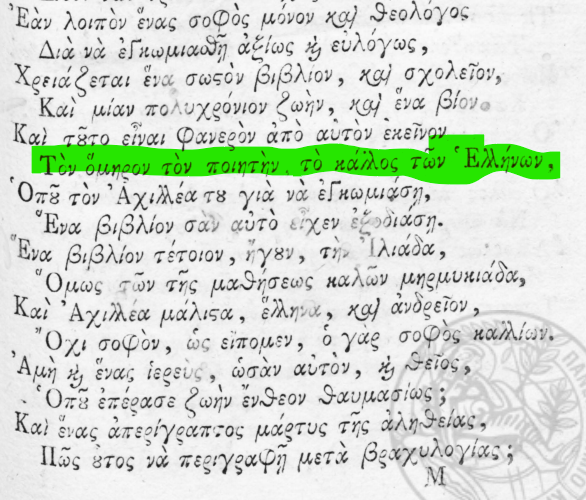 Ἐὰν λοιπὸν ἕνας σοφὸς μόνον καὶ θεολόγος
Διὰ νὰ ἐγκωμιασθῇ ἀξίως καὶ εὐλόγως,
Χρειάζεται ἕνα σωστὸν βιβλίον, καὶ σχολεῖον,
Καὶ μίαν πολυχρόνιον ζωὴν, καὶ ἕνα βίον.
Καὶ τοῦτο εἶναι φανερὸν ἀπὸ αὐτὸν ἐκεῖνον
Τὸν ὅμηρον τὸν ποιητὴν, τὸ κάλλος τῶν Ἑλλήνων,
Ὁποῦ τὸν Ἀχιλλέα του γιὰ νὰ ἐγκωμιάσῃ,
Ἕνα βιβλίον σὰν αὐτὸ εἶχεν ἐξοδιάσῃ.
Ἕνα βιβλίον τέτοιον, ἤγουν, τὴν Ἰλιάδα,
Ὅμως τῶν τῆς μαθήσεως καλῶν μηρμυκιάδα,
Καὶ Ἀχιλλέα μάλιστα, ἕλληνα, καὶ ἀνδρεῖον,
Ὄχι σοφὸν, ὡς εἴπομεν, ὁ γὰρ σοφὸς καλλίων.
Ἀμὴ καὶ ἕνας ἱερεὺς, ὡσὰν αὐτὸν, καὶ θεῖος,
Ὁποῦ ἐπέρασε ζωὴν ἔνθεον θαυμασίως;
Καὶ ἕνας ἀπερίγραπτος μάρτυς τῆς ἀληθείας,
Πῶς οὗτος νὰ περιγραφῇ μετὰ βραχυλογίας;
Μ